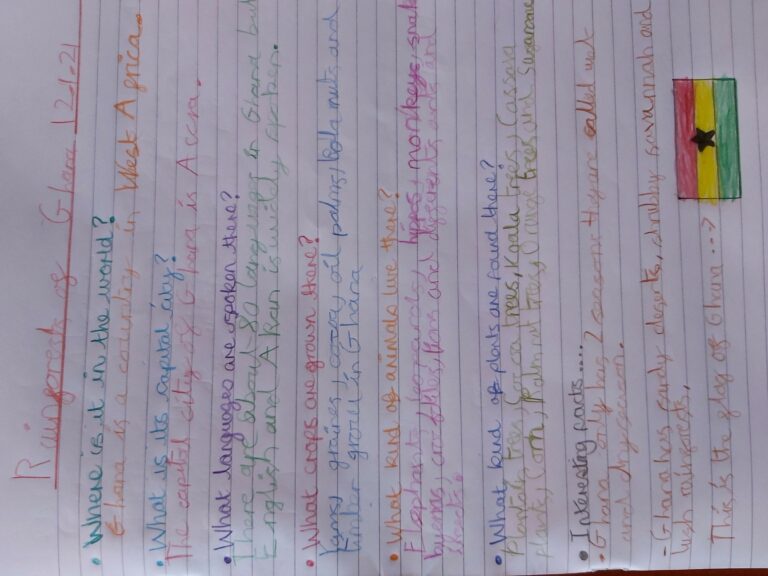 Rainforest of Ghana 12-1-21
• Where is it in the world?
Ghana is a country in West Africa.
• What is its capital city?
The capital city of Ghana is Accra.
• What languages are spoken there?
There are about 80 languages in Ghana but
English and Akan is widly spoken.
• What crops are grown there?
Yams, graines, cocoa, oil palms, kola nuts and
timber grow in Ghana
• What kind of animals live there?
Elephants, leopards, hippos, monkeys, snakes
buffaloes, crocodiles, lions and differents ants and
• What kind of plants are found there?
Plantain trees, Cocoa trees, Koala trees, Cassava
plants, Corn, Palm nut trees, Orange trees and Sugarcane
• Interesting facts....
- Ghana only has 2 seasons they are called wet
and dry season.
- Ghana has sandy deserts, shrubby savannah and
lush rainforests.
This is the flag of Ghana ...→